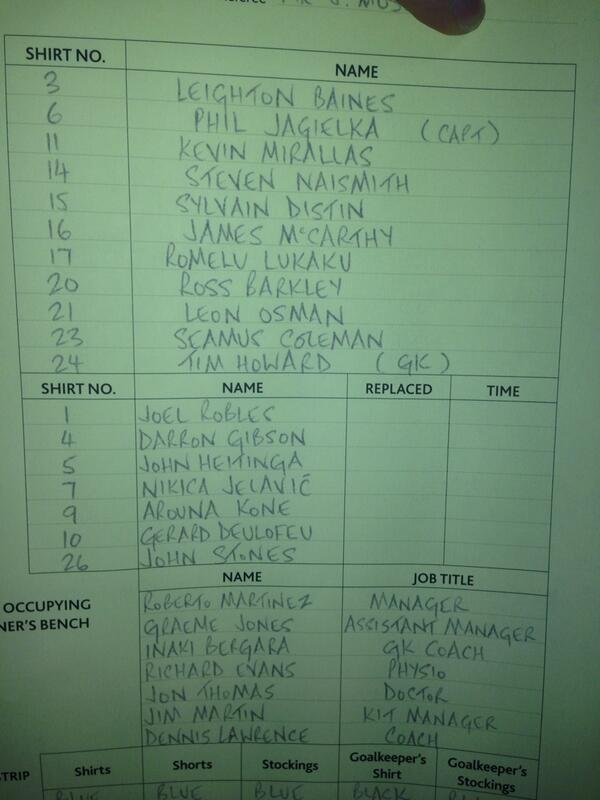 SHIRT NO. NAME
3 LEIGHTON BAINES
6 PHIL JAGIELKA (CAPT)
11 KEVIN MIRALLAS
14 STEVEN NAISMITH
15 SYLVAIN DISTIN
16 JAMES McCARTHY
17 ROMELU LUKAKU
20 ROSS BARKLEY
21 LEON OSMAN
23 SEAMUS COLEMAN
24 TIM HOWARD (GK)
SHIRT NO. NAME REPLACED TIME
1 JOEL ROBLES
4 DARRON GIBSON
5 JOHN HEITINGA
7 NIKICA JELAVIĆ
9 AROUNA KONE
10 GERARD DEULOFEU
26 JOHN STONES
NAME JOB TITLE
OCCUPYING ROBERTO MARTINEZ MANAGER
NER'S BENCH GRAEME JONES ASSISTANT MANAGER
INAKI BERGARA GK COACH
RICHARD EVANS PHYSIO
JON THOMAS DOCTOR
JIM MARTIN KIT MANAGER
DENNIS LAWRENCE COACH
STRIP Shirts Shorts Stockings Goalkeeper's Shirt Goalkeeper's Stockings
BLUE BLUE BLUE BLACK